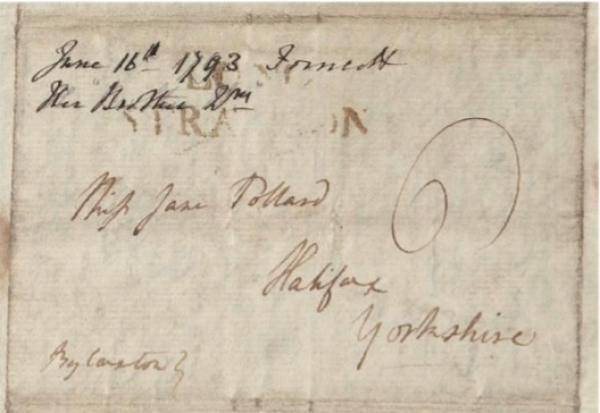 June 16th 1793 Forncett
Her Brother Wm
LONG
STRATTON
Miss Jane Pollard
Halifax
Yorkshire